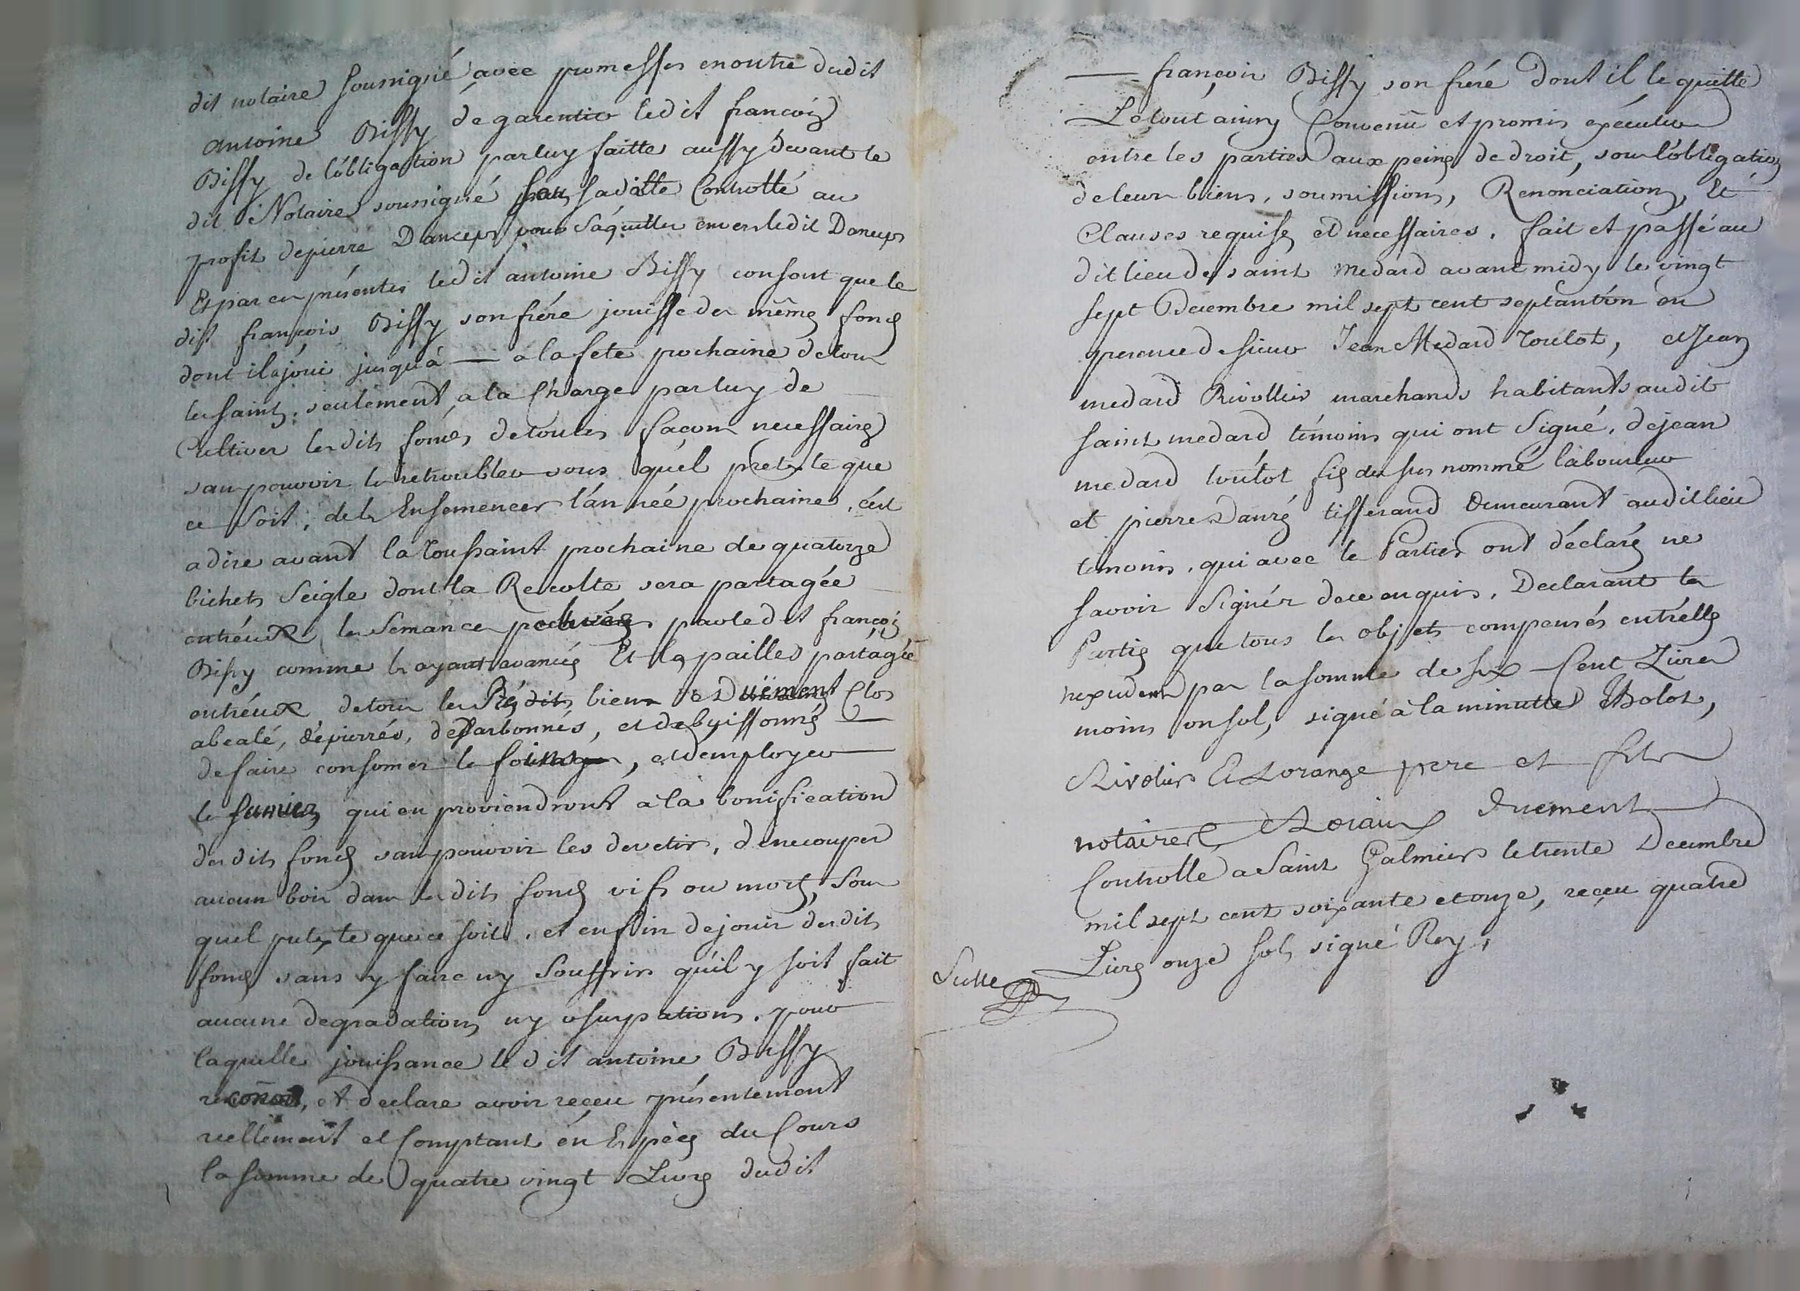 dit notaire soussigné avec promesses en outre dudit
antoine Biffy de garentir ledit françois
Biffy de l'obligation par luy faitte aussy devant le
dit Notaire soussigné sa ditte Controllé au
profit de pierre Dancep pour s'aquitter envers ledit Dancep
Et par ces présentes ledit antoine Biffy consent que le
dit françois Biffy son frére jouisse des mêmes fonds
dont il a joui jusqu'à — a la fete prochaine de tous
les saints, seulement a la Charge par luy de
Cultiver lesdits fonds de toutes façons necessaires
sans pouvoir les retroubler sous quel pretexte que
ce soit, de les Ensemencer l'année prochaine, c'est
a dire avant la toussaint prochaine de quatorze
bichets seigle dont la Recolte sera partagée
entréux les semances par ledit françois
Biffy comme les ayant avancés Et les pailles partagée
entréux de tenir les Prés dits biens Duëment Clos
abealé, dépierrés, détarbonnés, et debuissonnés —
de faire consomer les foins, et d'employer
les fumiers qui en proviendront à la bonification
desdits fonds sans pouvoir les devetir, d'en couper
aucun bois dans lesdits fonds vifs ou morts, sous
quel pretexte que ce soit, et enfin de jouir desdits
fonds sans y faire ny souffrir qu'il y soit fait
aucune degradations ny usurpations. pour
laquelle jouissance ledit antoine Biffy
reconoit, et declare avoir reçeu présentement
réellement et Comptant én Espéces du Cours
la somme de quatre vingt Livres dudit
— françois Biffy son frére dont il le quitte
Le tout ainsy Convenû et promis exécuter
entre les parties aux peines de droit, sous l'obligation
de leurs biens, soumissions, Renonciations, Et
Clauses requises et necessaires. fait et passé au
dit lieu de saint medard avant midy le vingt
sept Decembre mil sept cent septante un en
presence de sieur Jean Medard toulot, et Jean
medard Rivollier marchands habitants audit
saint medard témoins qui ont signé, de jean
medard toulot fils du sus nommé laboureur
et pierre Danré tisserand demeurant audit lieu
temoins, qui avec les Parties ont déclarés ne
savoir signér de ce enquis. Declarant les
Parties que tous les objets compensés entrélles
nexcedent par la somme de six Cent Livres
moins un sol, signé à la minutte tholot,
Rivolier Et Lorange pere et fils
notaires Royaux Duement
Controllé a Saint Galmier le trente Decembre
mil sept cent soixante et onze, reçeu quatre
Livres onze sols signé Rey,